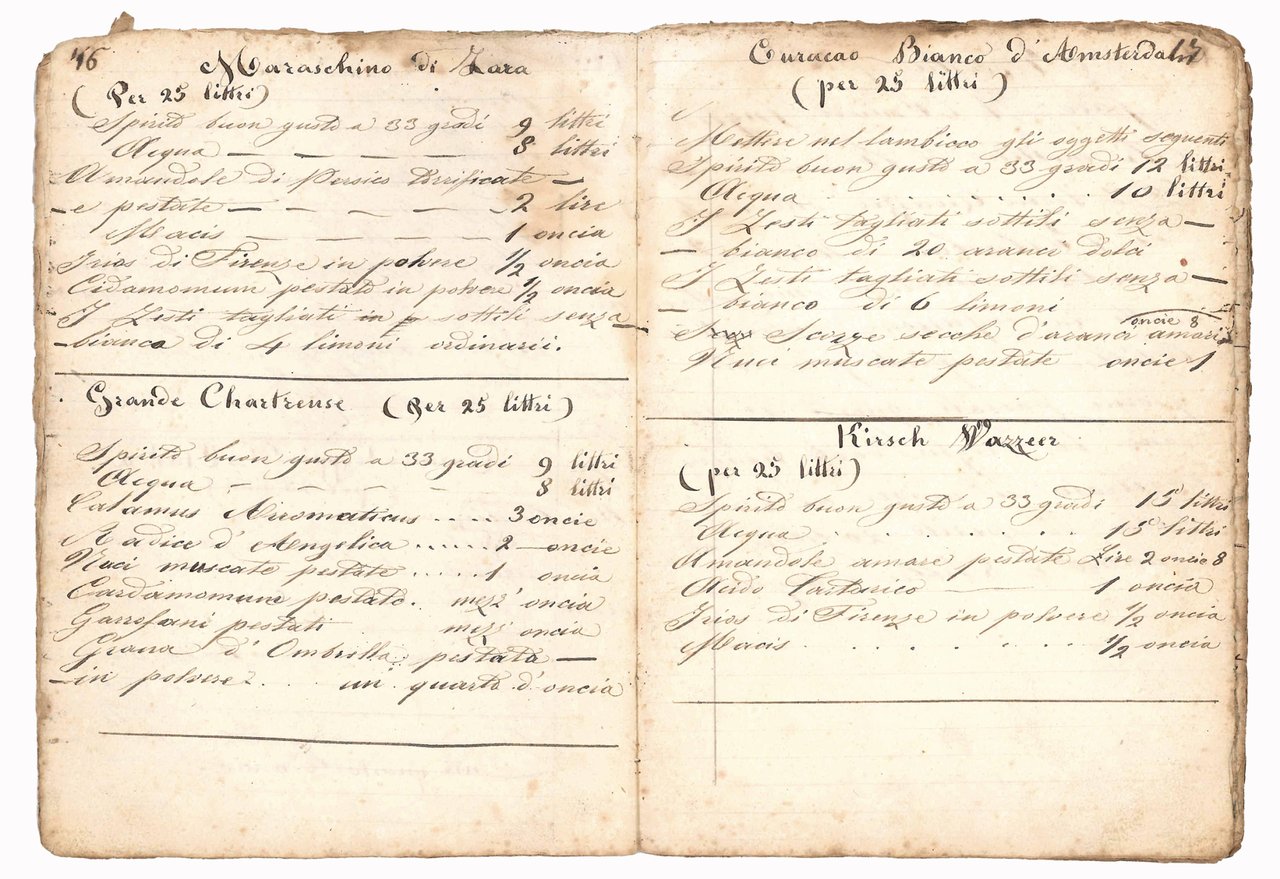 46
Maraschino di Zara
(Per 25 littri)
Spirito buon gusto a 33 gradi 9 littri
Acqua — — — — — 8 littri
Amandole di Persico torrificate —
— e pestate — — — — — 2 lire
Macis — — — — — 1 oncia
Irios di Firenze in polvere 1/2 oncia
Cidamomum pestato in polvere 1/2 oncia
I Zesti tagliati in sottili senza —
— bianco di 4 limoni ordinarii.
Grande Chartreuse (Per 25 littri)
Spirito buon gusto a 33 gradi 9 littri
Acqua — — — — 8 littri
Calamus Arromaticus .... 3 oncie
Radice d'Angelica ...... 2 — oncie
Nuci muscate pestate ..... 1 oncia
Cardamomum pestato. mezz' oncia
Garrofani pestati mezz' oncia
Grana d'Ombrella pestata —
— in polvere. . . . un' quarto d'oncia
Curacao Bianco d'Amsterdam
(per 25 littri)
Mettere nel lambicco gli oggetti seguenti
Spirito buon gusto a 33 gradi 12 littri
Acqua . . . . . . . . 10 littri
I Zesti tagliati sottili senza —
— bianco di 20 aranci dolci
I Zesti tagliati sottili senza —
— bianco di 6 limoni
Scorze secche d'aranci amari oncie 8
Nuci muscate pestate oncie 1
Kirsch Wazzeer
(per 25 littri)
Spirito buon gusto a 33 gradi 15 littri
Acqua . . . . . . . 15 littri
Amandole amare pestate Lire 2 oncie 8
Acido Tartarico — 1 oncia
Irios di Firenze in polvere 1/2 oncia
Macis . . . . . . . 1/2 oncia